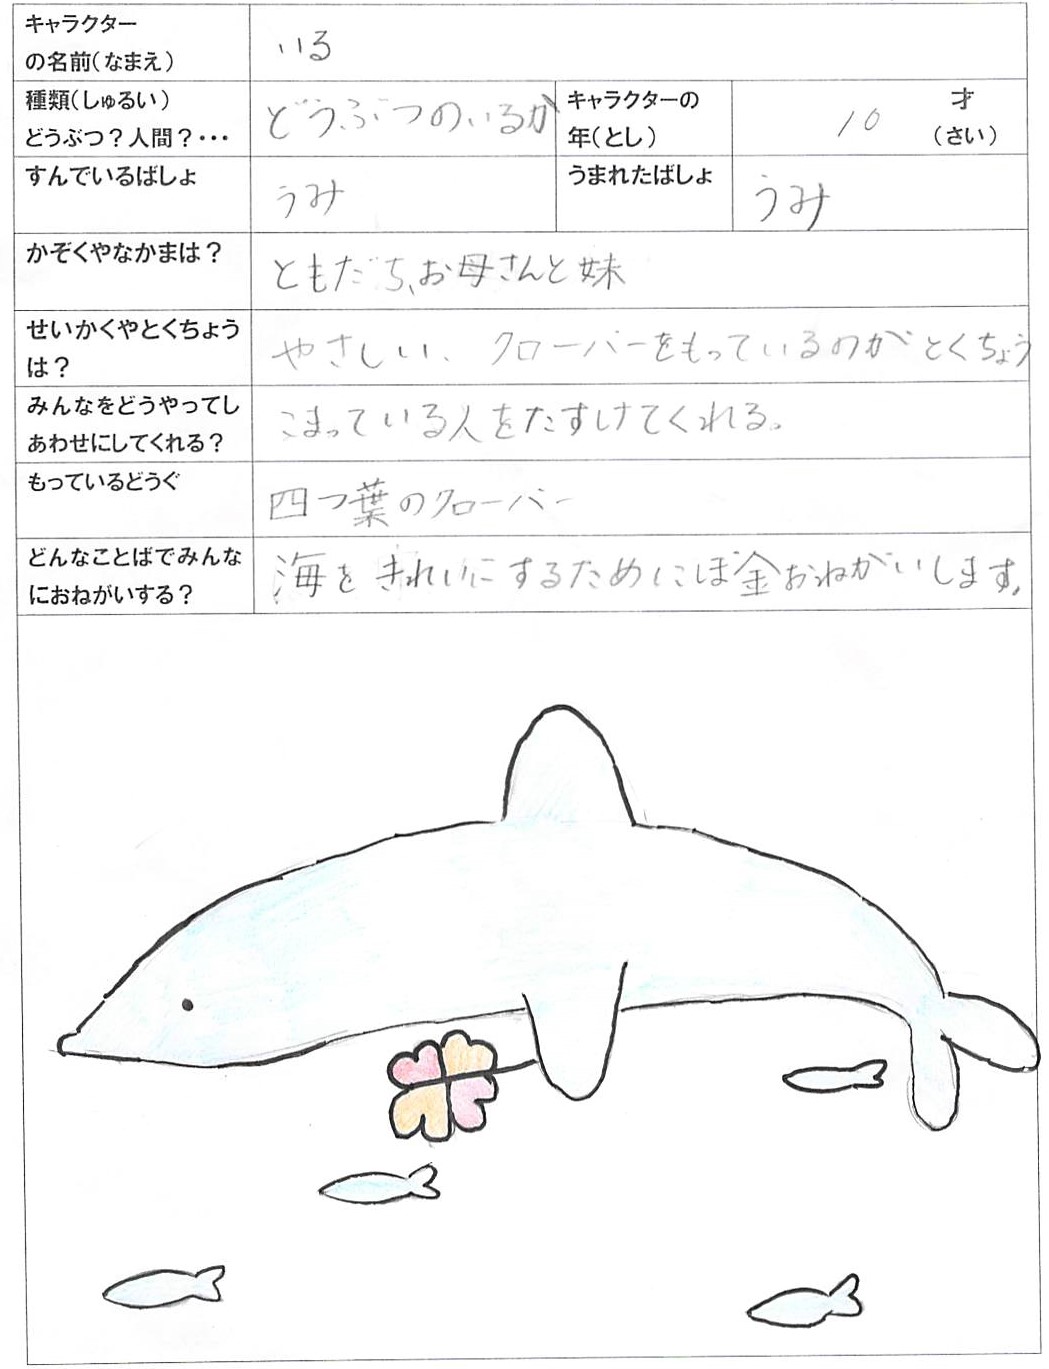 キャラクター
の名前(なまえ)
いる
種類(しゅるい)
どうぶつ?人間?・・・
どうぶつのいるか
キャラクターの
年(とし)
10
才
(さい)
すんでいるばしょ
うみ
うまれたばしょ
うみ
かぞくやなかまは?
ともだち、お母さんと妹
せいかくやとくちょう
は?
やさしい、クローバーをもっているのがとくちょう
みんなをどうやってし
あわせにしてくれる?
こまっている人をたすけてくれる。
もっているどうぐ
四つ葉のクローバー
どんなことばでみんな
におねがいする?
海をきれいにするためにぼ金おねがいします。